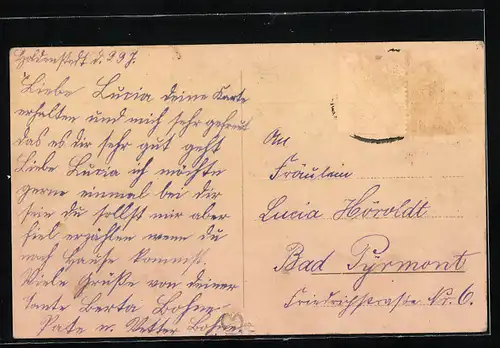 Holdenstedt d. 29 7.
Liebe Lucia deine Karte
erhalten und mich sehr gefreut
das es dir sehr gut geht
Liebe Lucia ich möchte
gerne einmal bei dir
sein du sollst mir aber
fiel erzählen wenn du
nach Hause kommst.
Viele Grüße von deiner
Tante Berta Bohne
Pate u. Vetter Bohne
An
Fräulein
Lucia Höroldt
Bad Pyrmont
Friedrichstraße Nr. 6.